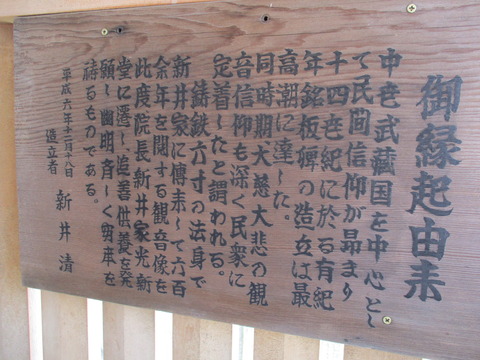 御縁起由来
中世武蔵国を中心と
て民間信仰が昂まり
十四世紀に於る有紀
年銘板碑の造立は最
高潮に達した。
同時期大慈大悲の観
音信仰も深く民衆に
定着したと謂われる。
鋳鉄六寸の法身で
新井家に傳来して六百
余年を閲する観音像を
此度院長新井家光新
堂に遷し追善供養を発
願し幽明斉しく安卒を
祷るものである。
平成六年十二月十八日
造立者 新井清